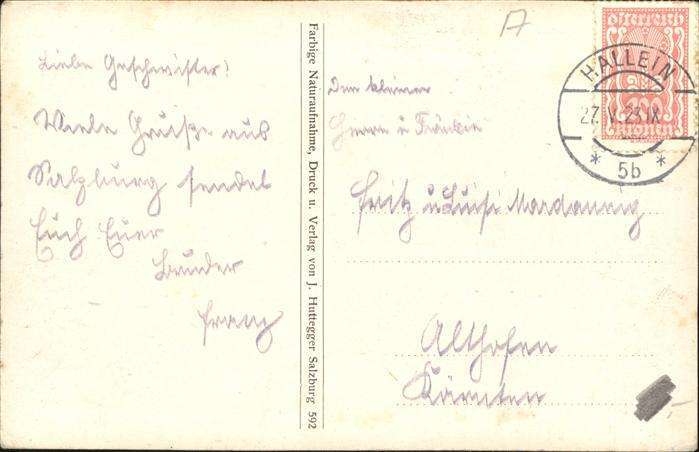 Liebe Geschwister!
Viele Grüße aus
Salzburg sendet
Euch Euer
Bruder
Franz
Farbige Naturaufnahme, Druck u. Verlag von J. Huttegger Salzburg 592
Österreich
Kronen
HALLEIN
27. V. 23 IX
* 5b *
Dem kleinen
Herrn u Fräulein
Fritz u Luisi
Althofen
Kärnten